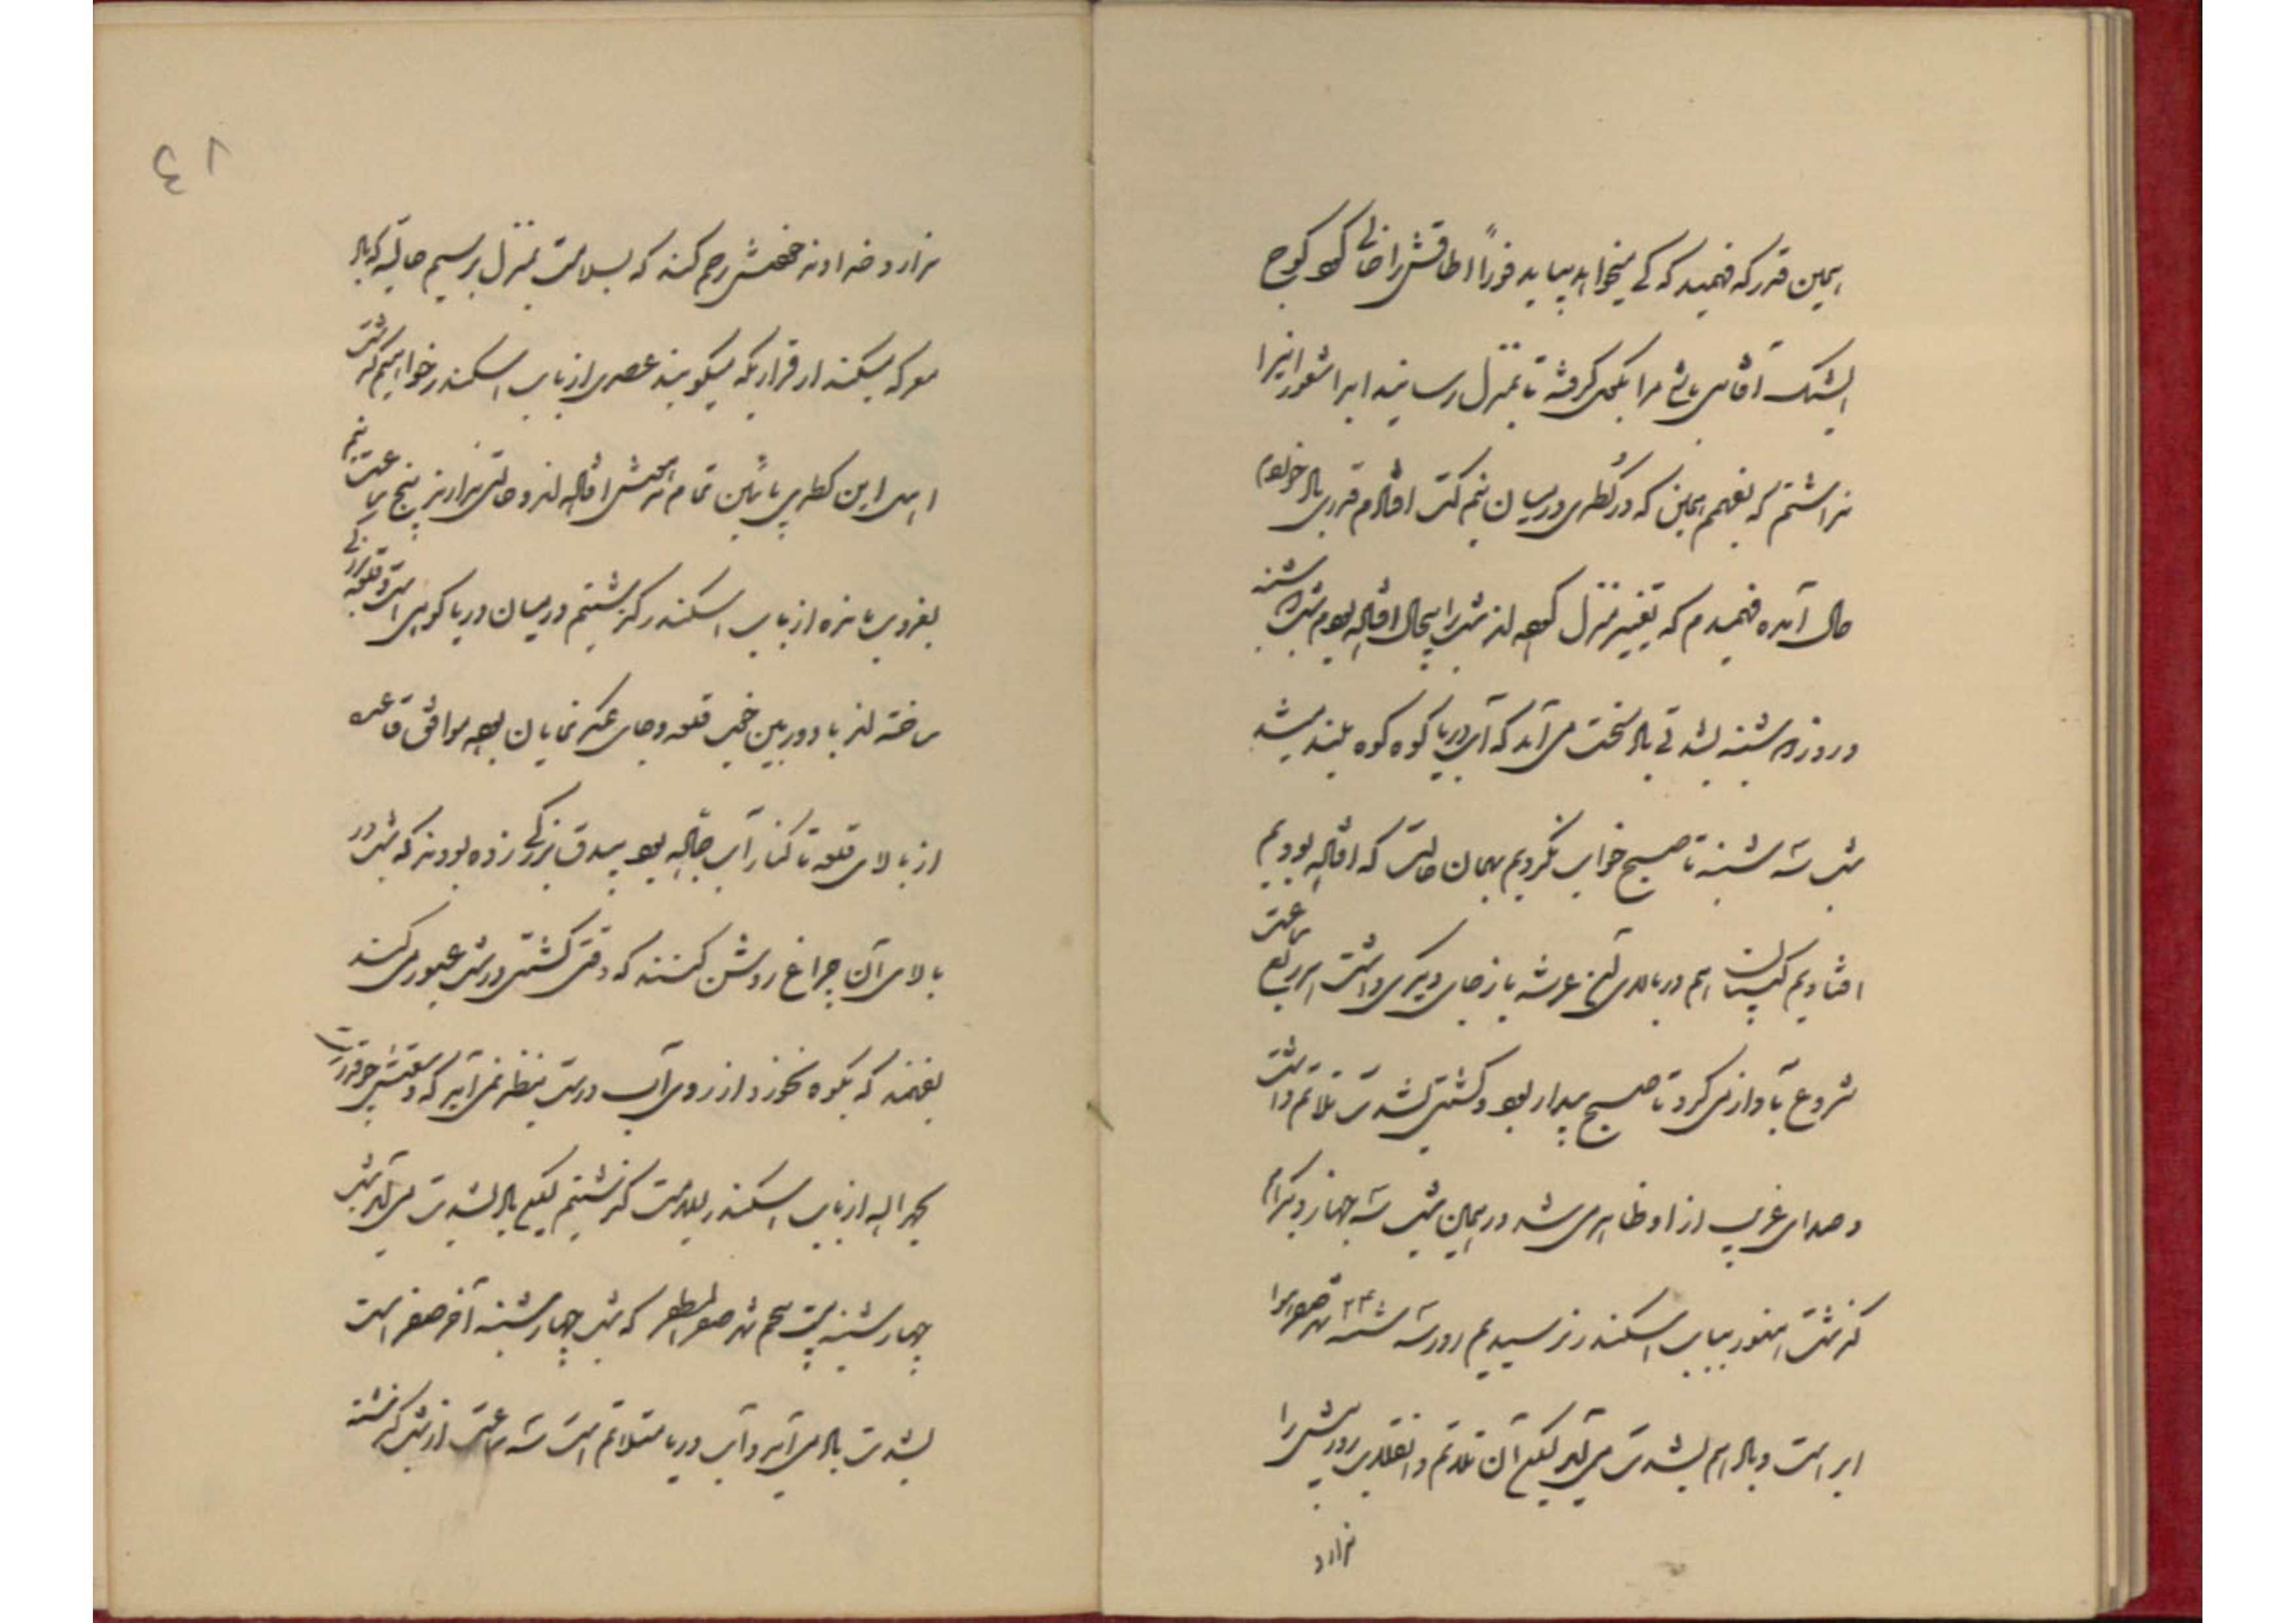 همین قدر که فهمید که کسی میخواهد بیاید فوراً اطاقش را خالی کرده کوچ
ایشیک آقاسی باشی مرا بغل گرفته تا بمنزل رسانید ابدا شعور اینرا
نداشتم که بفهمم همین که در کطری در میان نیم کت افتادم قدری بال خودم
حال آمده فهمیدم که تغییر منزل کرده اند شب را بیحال افتاده بودم شب دوشنبه
و روز دوشنبه بشدتی باد سخت می آمد که آب دریا کوه کوه بلند میشد
شب سه شنبه تا صبح خواب نکردیم بهمان حالت که افتاده بودیم
افتادیم کپیتان هم در بالای عرشه باز جای دیگری داشت هر ربع ساعت
شروع بآواز می کرد تا صبح بیدار بود و کشتی بشدت تلاتم داشت
و صدای غریب از او ظاهر می شد در همین شب سه جهاز دیگر هم
گذشت هنوز بباب اسکندر نرسیدیم روز سه شنبه ۲۴ شهر صفر هوا
ابر است و باد هم بشدت می آید لیکن آن تلاتم و انقلاب روز پیش را
ندارد
۴۱
ندارد خداوند خودش رحم کند که بسلامت بمنزل برسیم حالیه که باد
معرکه میکند از قراریکه میگویند عصری از باب اسکندر خواهیم گذشت
اهل این کطری پائین تمام افتاده اند و حالتی ندارند پنج ساعت نیم
بغروب مانده از باب اسکندر گذشتیم در میان دریا کوهی است و قلعه بزرگی
ساخته اند با دوربین خوب قلعه و جای عسکر نمایان بود موافق قاعده
از بالای قلعه تا کنار آب بود بیدق بزرگی زده بودند که شب در
بالای آن چراغ روشن کنند که وقتی کشتی در شب عبور می کند
بفهمند که بکوه نخورد از روی آب درست بنظر نمی آید که وسعتش چقدر است
بحمد الله از باب اسکندر بسلامت گذشتیم لیکن باد بشدت می آید شب
چهارشنبه بیست پنجم شهر صفر المظفر که شب چهارشنبه آخر صفر است
بشدت باد می آید و آب دریا متلاتم است سه ساعت از شب گذشته